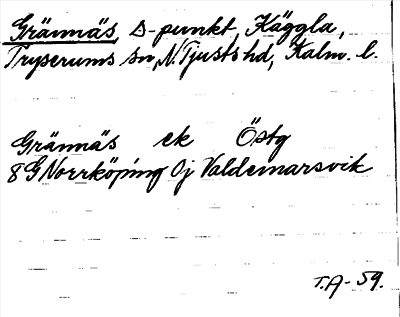 Grännäs, D-punkt, Käggla,
Tryserums sn, N. Tjusts hd, Kalm. l.
Grännäs ek Östg
8G Norrköping 0j Valdemarsvik
T.A-59.